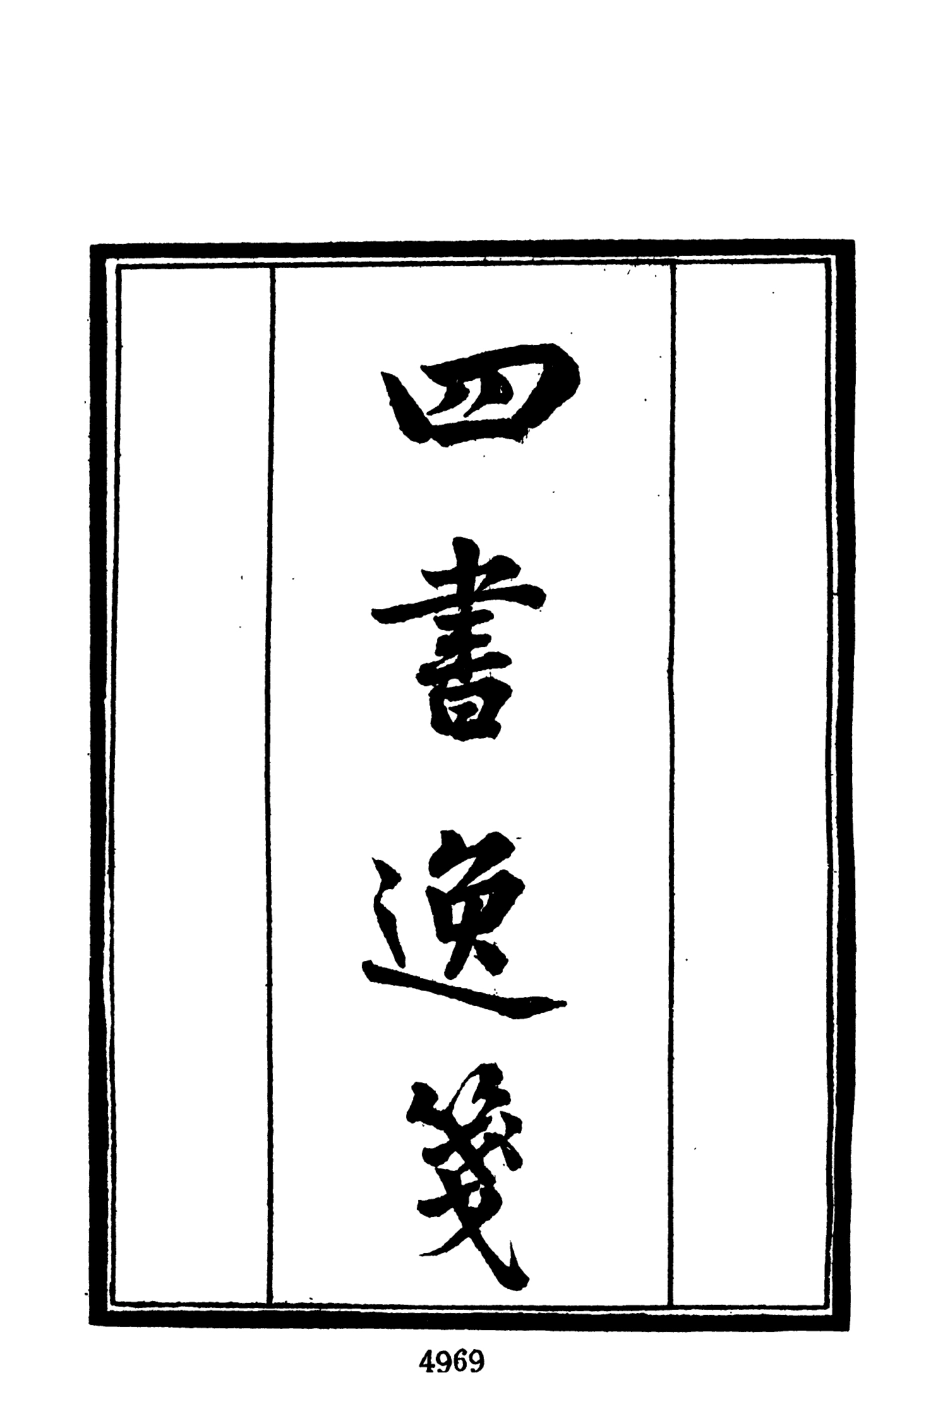 四書逸箋
4969